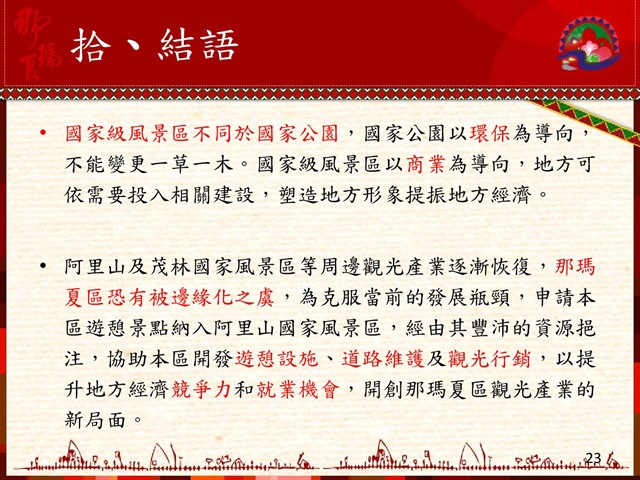 那瑪夏
拾、結語
• 國家級風景區不同於國家公園，國家公園以環保為導向，
不能變更一草一木。國家級風景區以商業為導向，地方可
依需要投入相關建設，塑造地方形象提振地方經濟。
• 阿里山及茂林國家風景區等周邊觀光產業逐漸恢復，那瑪
夏區恐有被邊緣化之虞，為克服當前的發展瓶頸，申請本
區遊憩景點納入阿里山國家風景區，經由其豐沛的資源挹
注，協助本區開發遊憩設施、道路維護及觀光行銷，以提
升地方經濟競爭力和就業機會，開創那瑪夏區觀光產業的
新局面。
23